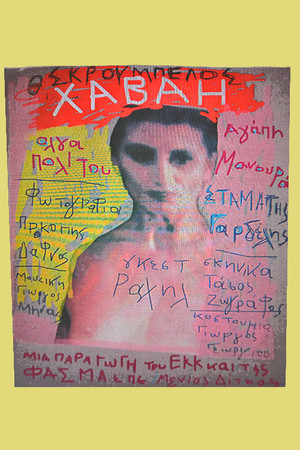 Θ ΣΚΡΟΥΜΠΕΛΟΣ
ΧΑΒΑΗ
Όλγα
Πολίτου
Αγάπη
Μανουρά
Φωτογραφία
Προκόπης
Δάφνος
ΣΤΑΜΑΤΗΣ
Γαρδέλης
Μουσική
Γιώργος
Μηνάς
γκεστ
Ραχήλ
σκηνικά
Τάσος
Ζωγράφος
κοστούμια
Γιώργος
ΜΙΑ ΠΑΡΑΓΩΓΗ του ΕΚΚ και της
ΦΑΣΜΑ